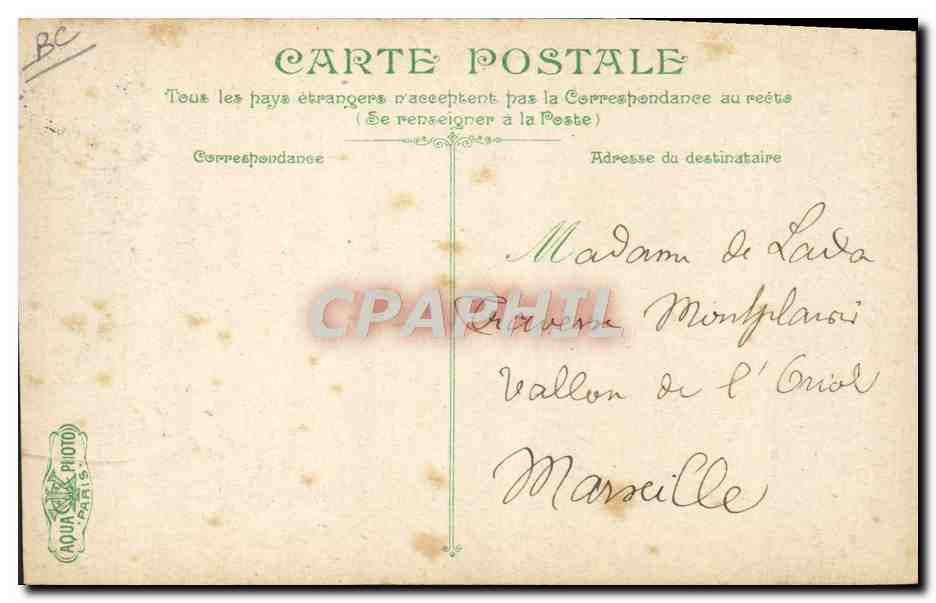 BC
CARTE POSTALE
Tous les pays étrangers n'acceptent pas la Correspondance au recto
(Se renseigner à la Poste)
Correspondance
Adresse du destinataire
Madame de
Traverse Montplaisir
Vallon de l'Oriol
Marseille
CPAPHIL
AQUA PHOTO
PARIS